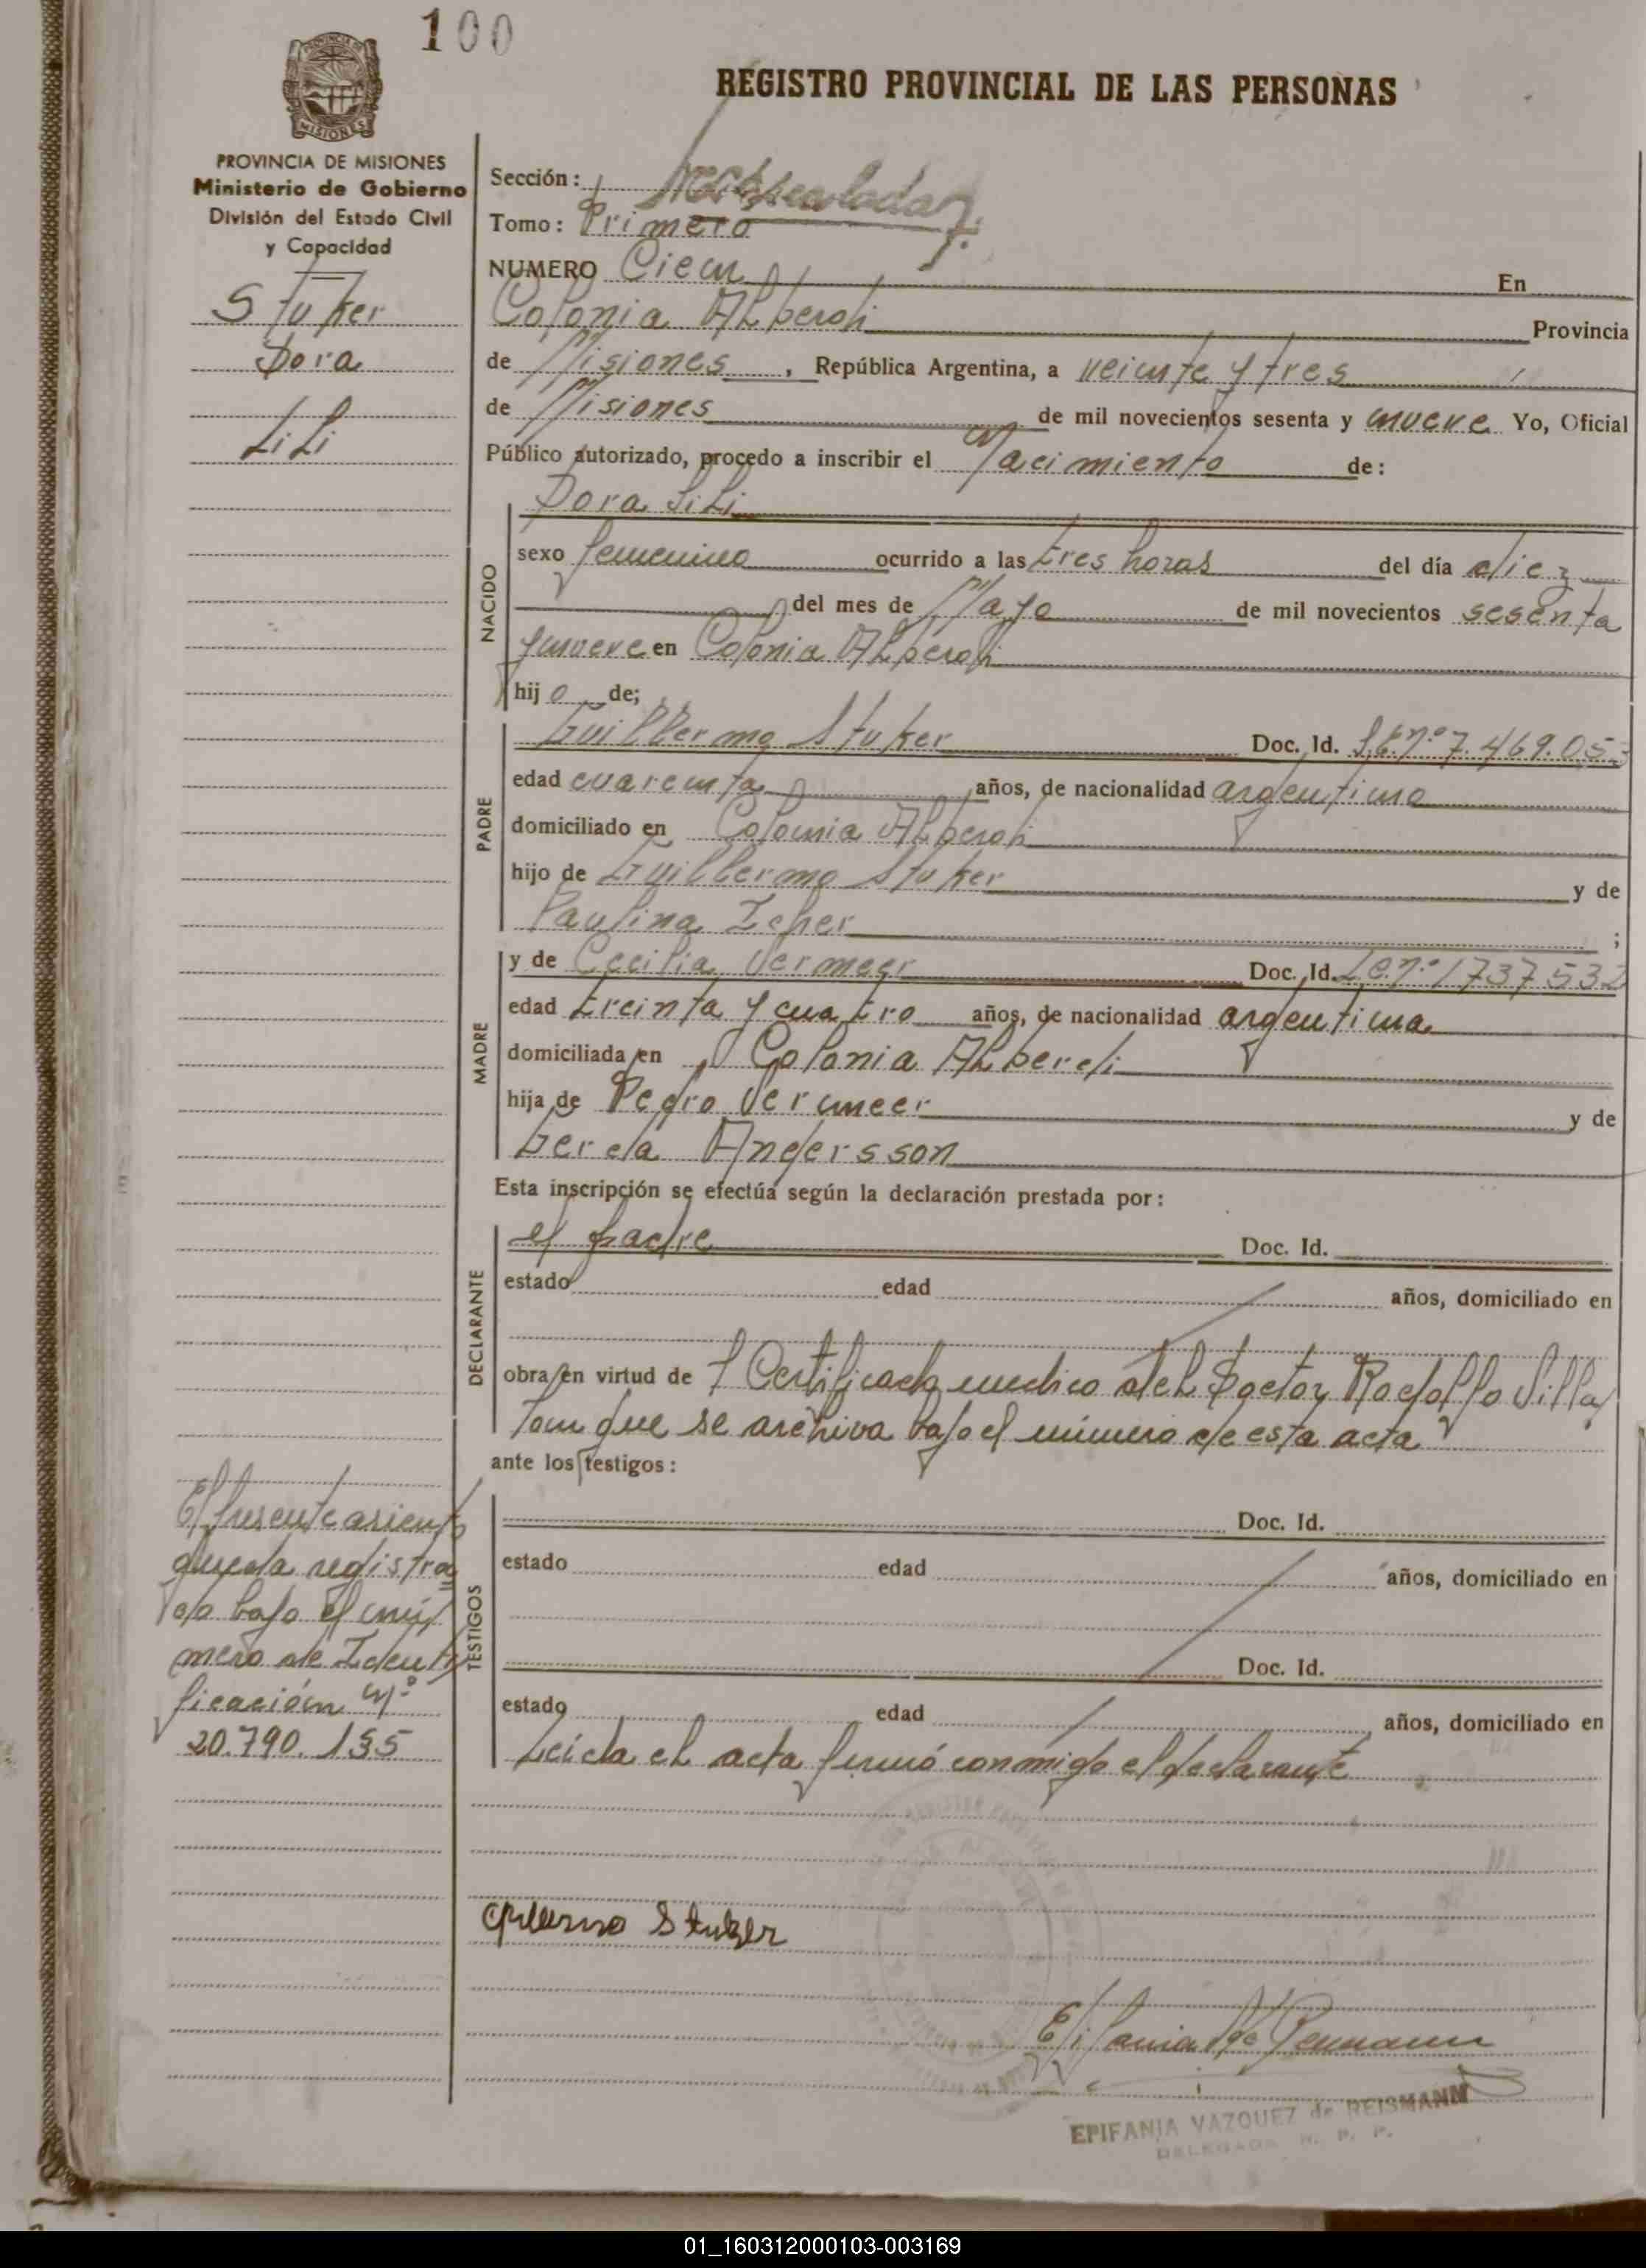 100
REGISTRO PROVINCIAL DE LAS PERSONAS
PROVINCIA DE MISIONES
Ministerio de Gobierno
División del Estado Civil
y Capacidad
Stuker
Dora
Lili
Sección:
Tomo: Primero
NUMERO Cien En
Colonia Alberdi Provincia
de Misiones, República Argentina, a veinte y tres
de Misiones de mil novecientos sesenta y nueve Yo, Oficial
Público autorizado, procedo a inscribir el Nacimiento de:
NACIDO
Dora Lili
sexo femenino ocurrido a las tres horas del día diez
del mes de Mayo de mil novecientos sesenta
y nueve en Colonia Alberdi
hijo de;
PADRE
Guillermo Stuker Doc. Id. nº 7.469.053
edad cuarenta años, de nacionalidad argentino
domiciliado en Colonia Alberdi
hijo de Guillermo Stuker y de
Paulina ;
MADRE
y de Cecilia Vermeer Doc. Id. nº 1737532
edad treinta y cuatro años, de nacionalidad argentina
domiciliada en Colonia Alberdi
hija de Pedro Vermeer y de
Gerda Andersson
Esta inscripción se efectúa según la declaración prestada por:
DECLARANTE
el padre Doc. Id.
estado edad años, domiciliado en
obra en virtud de 1 Certificado medico del Doctor Rodolfo
que se archiva bajo el número de esta acta
ante los testigos:
TESTIGOS
Doc. Id.
estado edad años, domiciliado en
Doc. Id.
estado edad años, domiciliado en
Leída el acta firmó conmigo el declarante
El presente asiento
queda registra
do bajo el nú
mero de Identi
ficación Nº
20.790.155
Stuker
EPIFANIA VAZQUEZ de REISMANN
DELEGADA R. P. P.
01_160312000103-003169